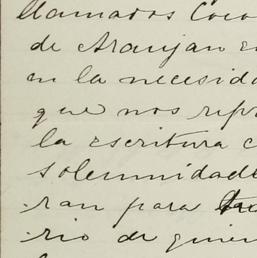 llamados Coco
de Aranjan en
en la necesida
que nos repr
la escritura c
solemnidade
ran para
rio de quien